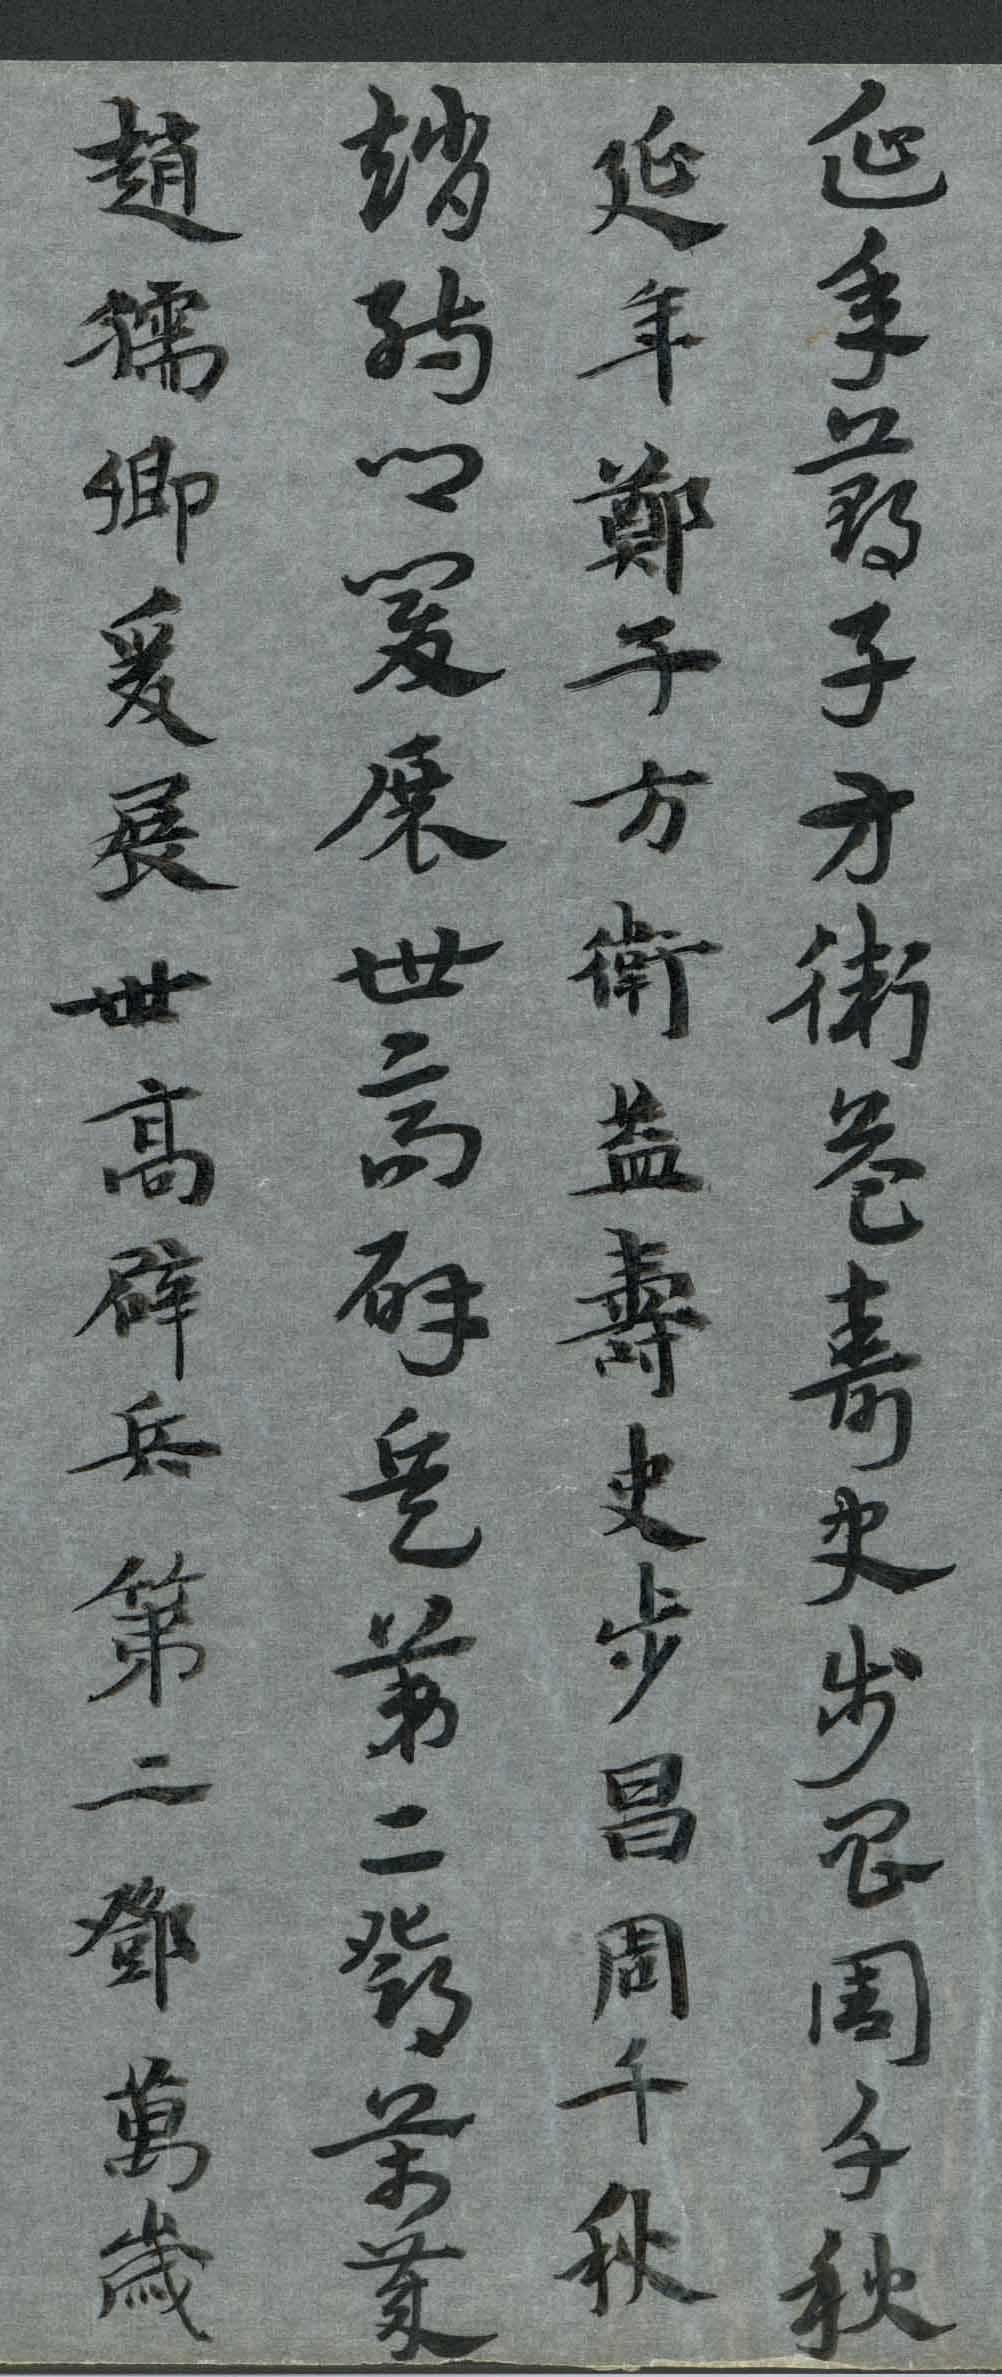 延年鄭子方衛益壽史步昌周千秋
延年鄭子方衛益壽史步昌周千秋
趙孺卿爰展世高辟兵第二鄧萬歲
趙孺卿爰展世高辟兵第二鄧萬歲